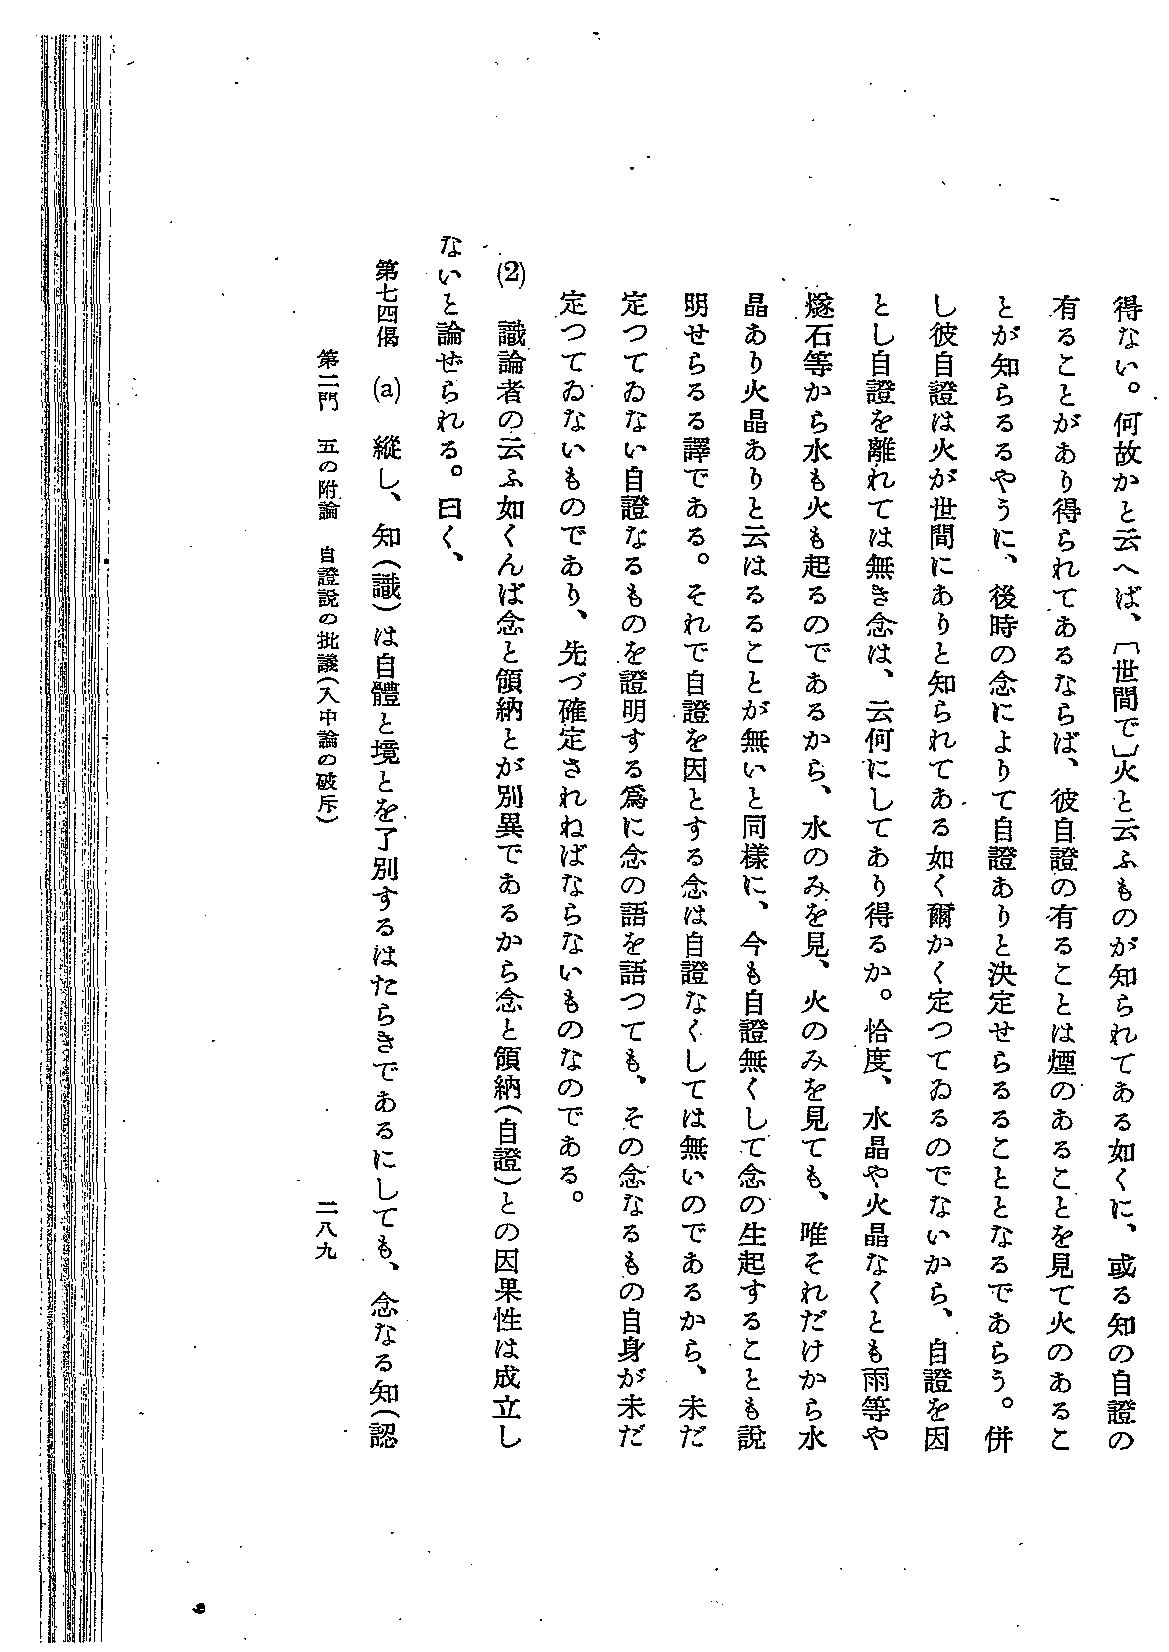 得ない。何故かと云へば、〔世間で〕火と云ふものが知られてある如くに、或る知の自證の
有ることがあり得られてあるならば、彼自證の有ることは煙のあることを見て火のあるこ
とが知らるるやうに、後時の念によりて自證ありと決定せらるることとなるであらう。併
し彼自證は火が世間にありと知られてある如く爾かく定つてゐるのでないから、自證を因
とし自證を離れては無き念は、云何にしてあり得るか。恰度、水晶や火晶なくとも雨等や
燧石等から水も火も起るのであるから、水のみを見、火のみを見ても、唯それだけから水
晶あり火晶ありと云はるることが無いと同樣に、今も自證無くして念の生起することも說
明せらるる譯である。それで自證を因とする念は自證なくしては無いのであるから、未だ
定つてゐない自證なるものを證明する爲に念の語を語つても、その念なるもの自身が未だ
定つてゐないものであり、先づ確定されねばならないものなのである。
(2) 識論者の云ふ如くんば念と領納とが別異であるから念と領納(自證)との因果性は成立し
ないと論ぜられる。曰く、
第七四偈 (a) 縱し、知(識)は自體と境とを了別するはたらきであるにしても、念なる知(認
第二門 五の附論 自證說の批議(入中論の破斥)
二八九